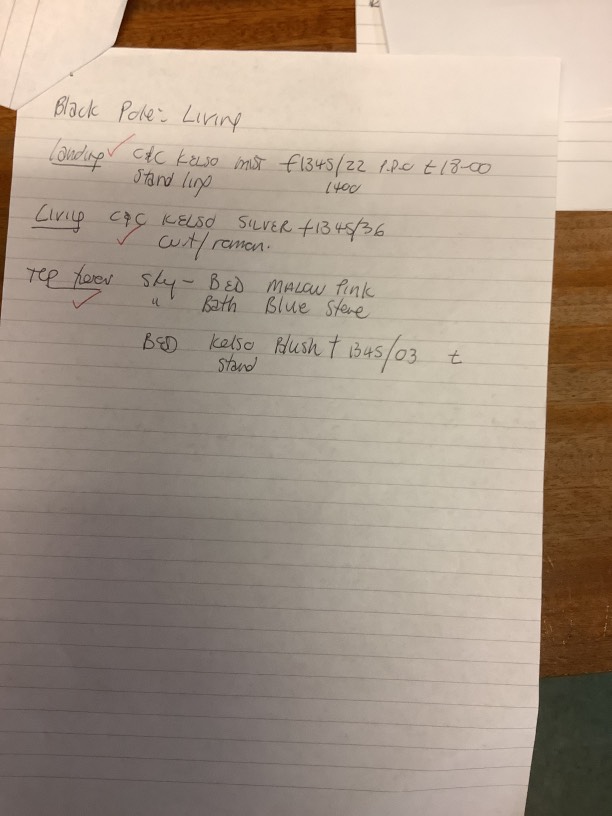 Black Pole: Living
Landing C&C KELSO MIST f1345/22 P.P.O £18-00
Stand 1400
Living C&C KELSO SILVER f1345/36
curt/roman.
Top Sky - BED MALOW Pink
" Bath Blue Stone
BED Kelso Blush f 1345/03 £
Stand